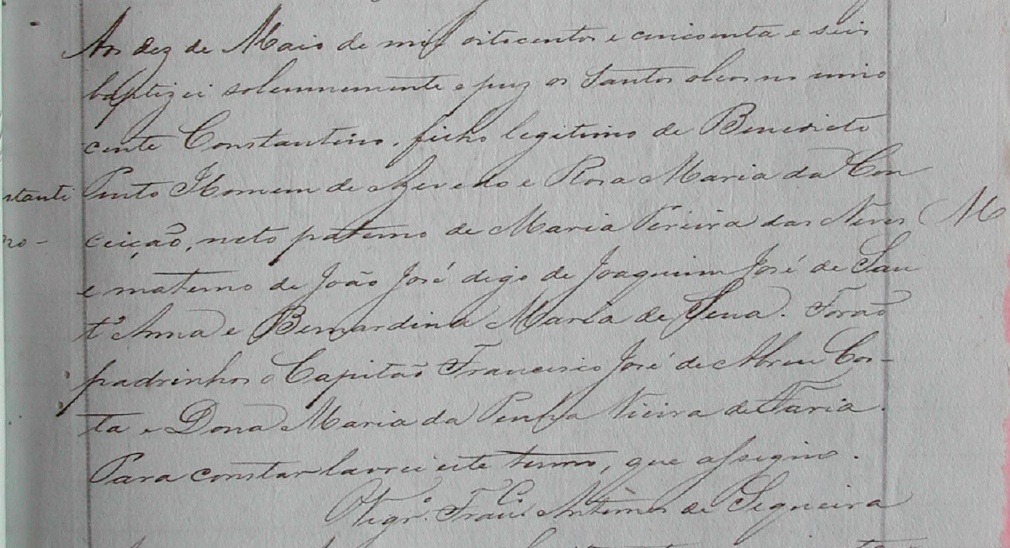 Aos dez de Maio de mil oitocentos e cincoenta e seis
baptizei solemnemente e puz os Santos oleos no inno
cente Constantino, filho legitimo de Benedicto
Pinto Homem de Azevedo e Rosa Maria da Con
ceição, neto paterno de Maria Pereira das Neves
e materno de João José digo de Joaquim José de San
t'Anna e Bernardina Maria de Sena. Forão
padrinhos o Capitão Francisco José de Abreu Cos-
ta e Dona Maria da Penha Vieira de Faria.
Para constar lavrei este termo, que assigno.
Vigr.º Antonio de Siqueira
stanti
no-
M